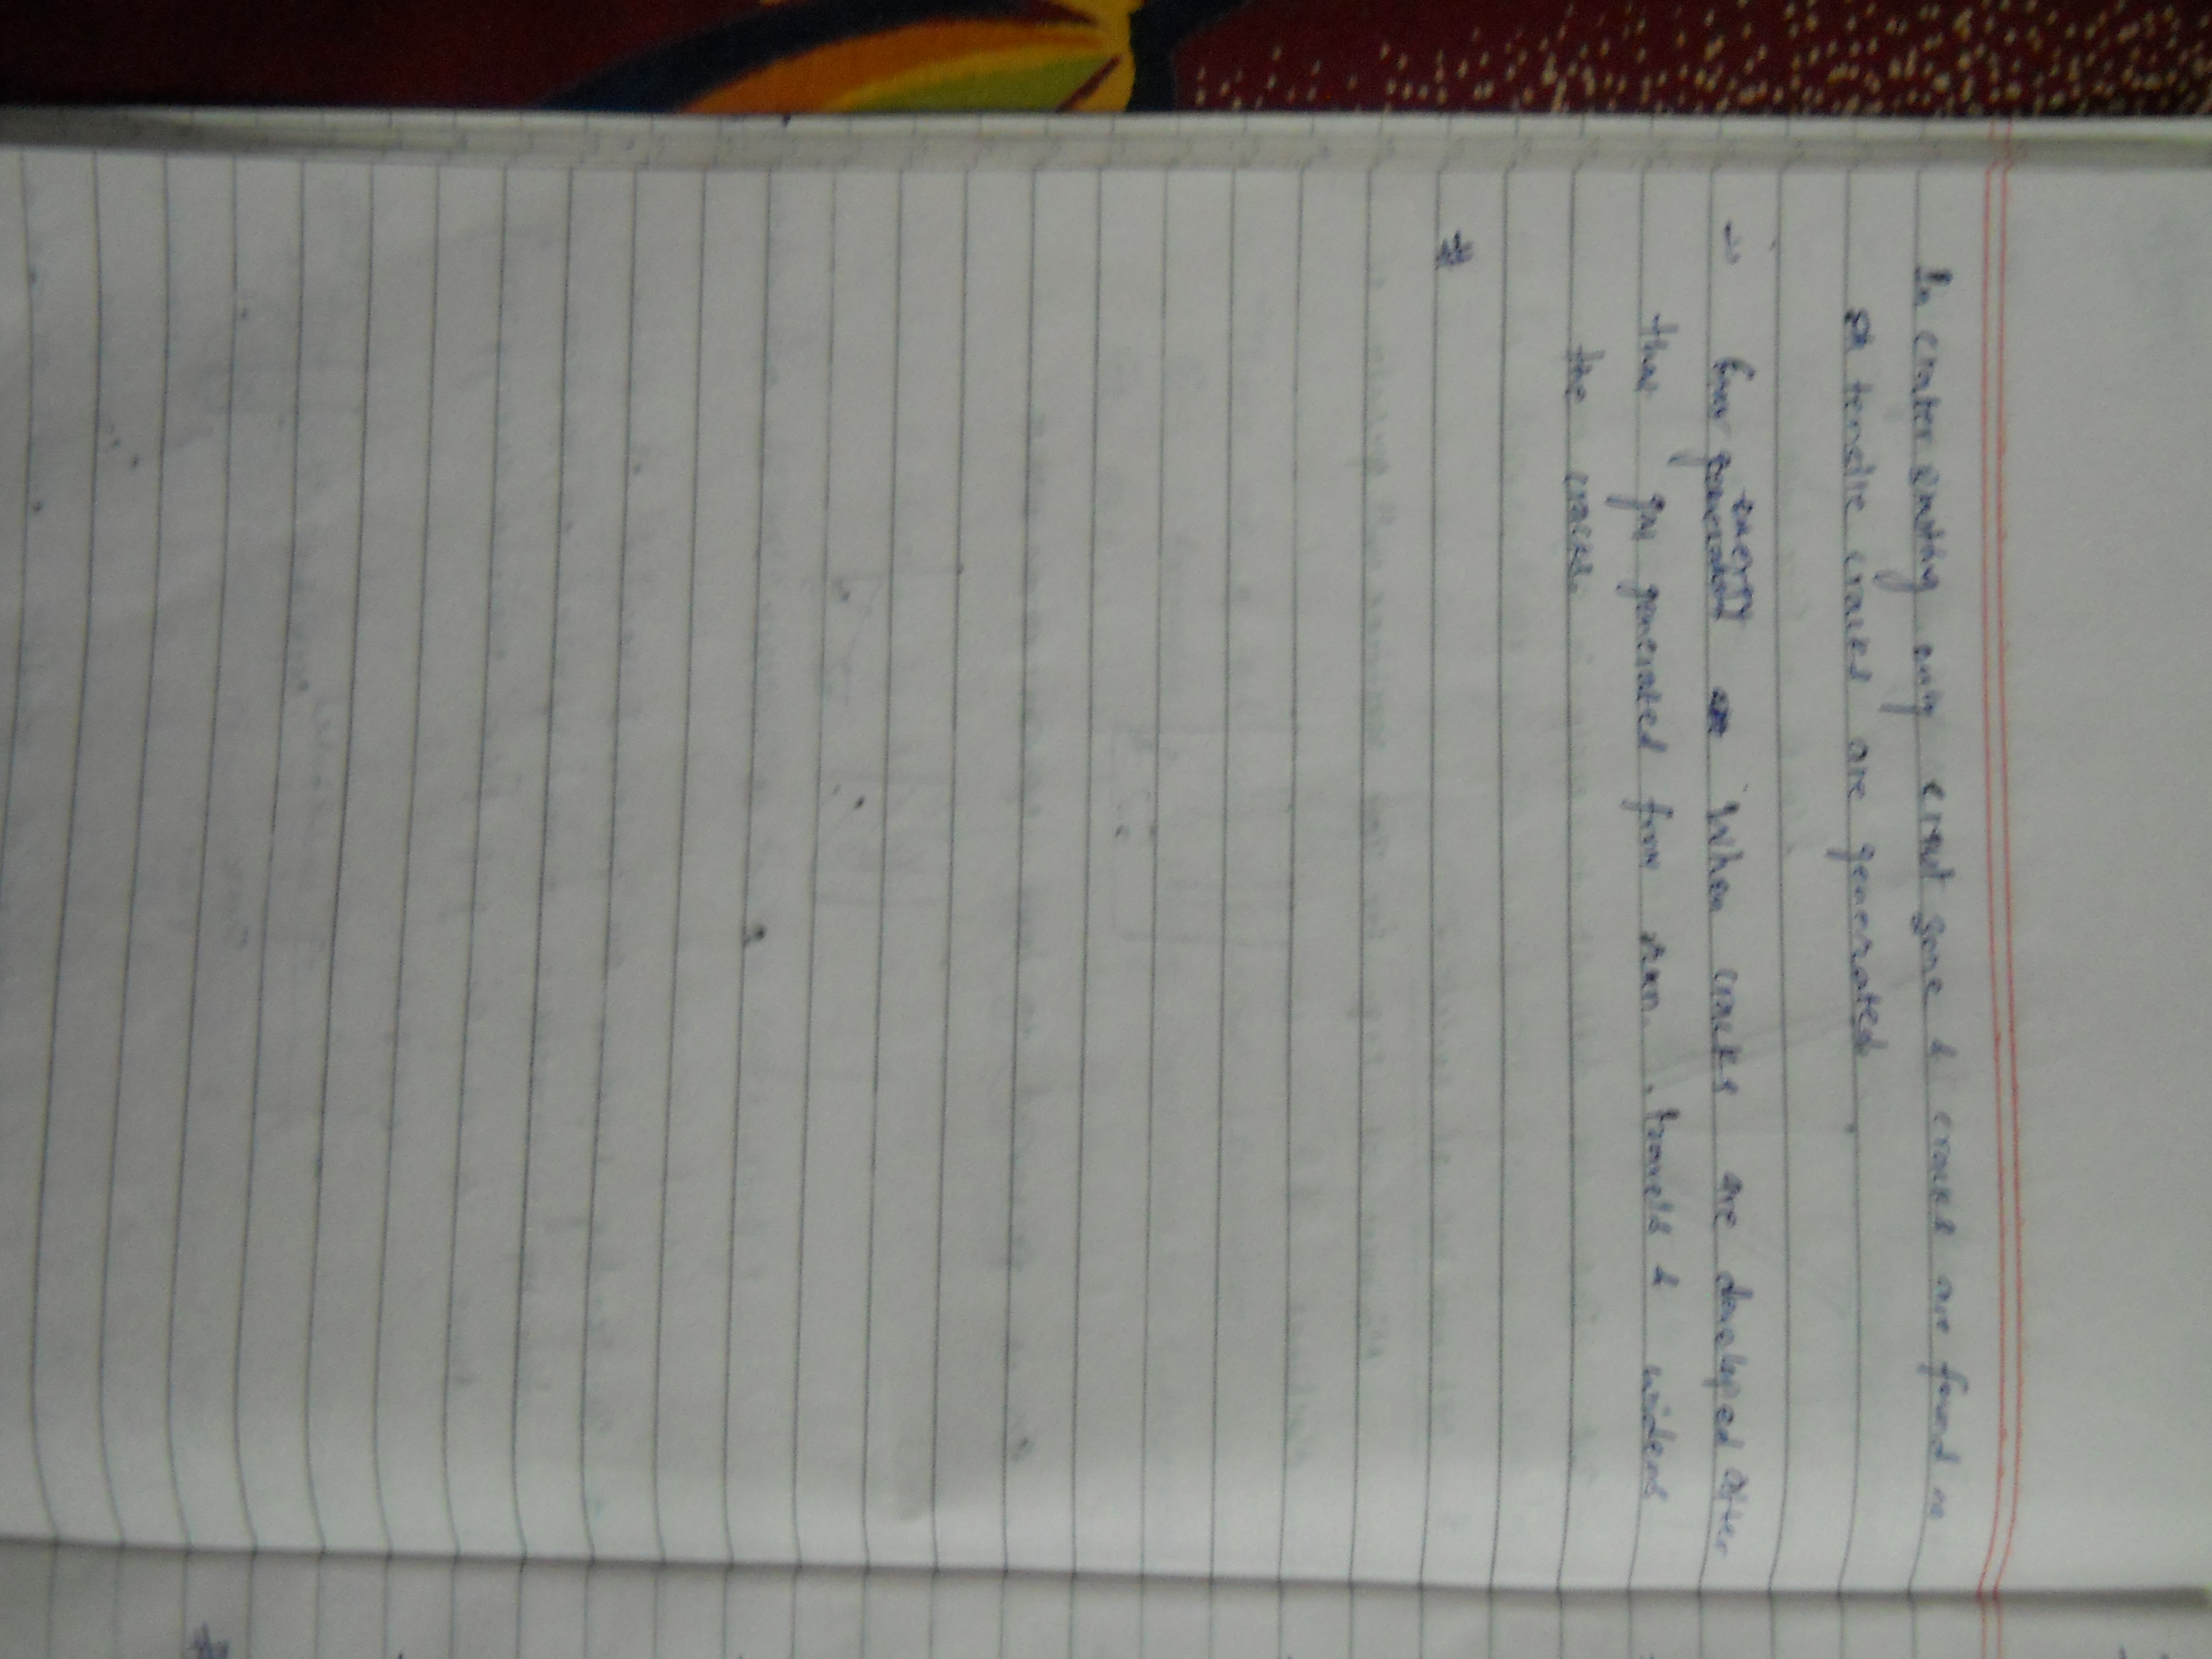 In crater cutting only crest zone & cracks are found
tensile cracks are generated
→ Gas energy When cracks are developed after
that gas generated from rxn. travels & widens
the cracks.
#